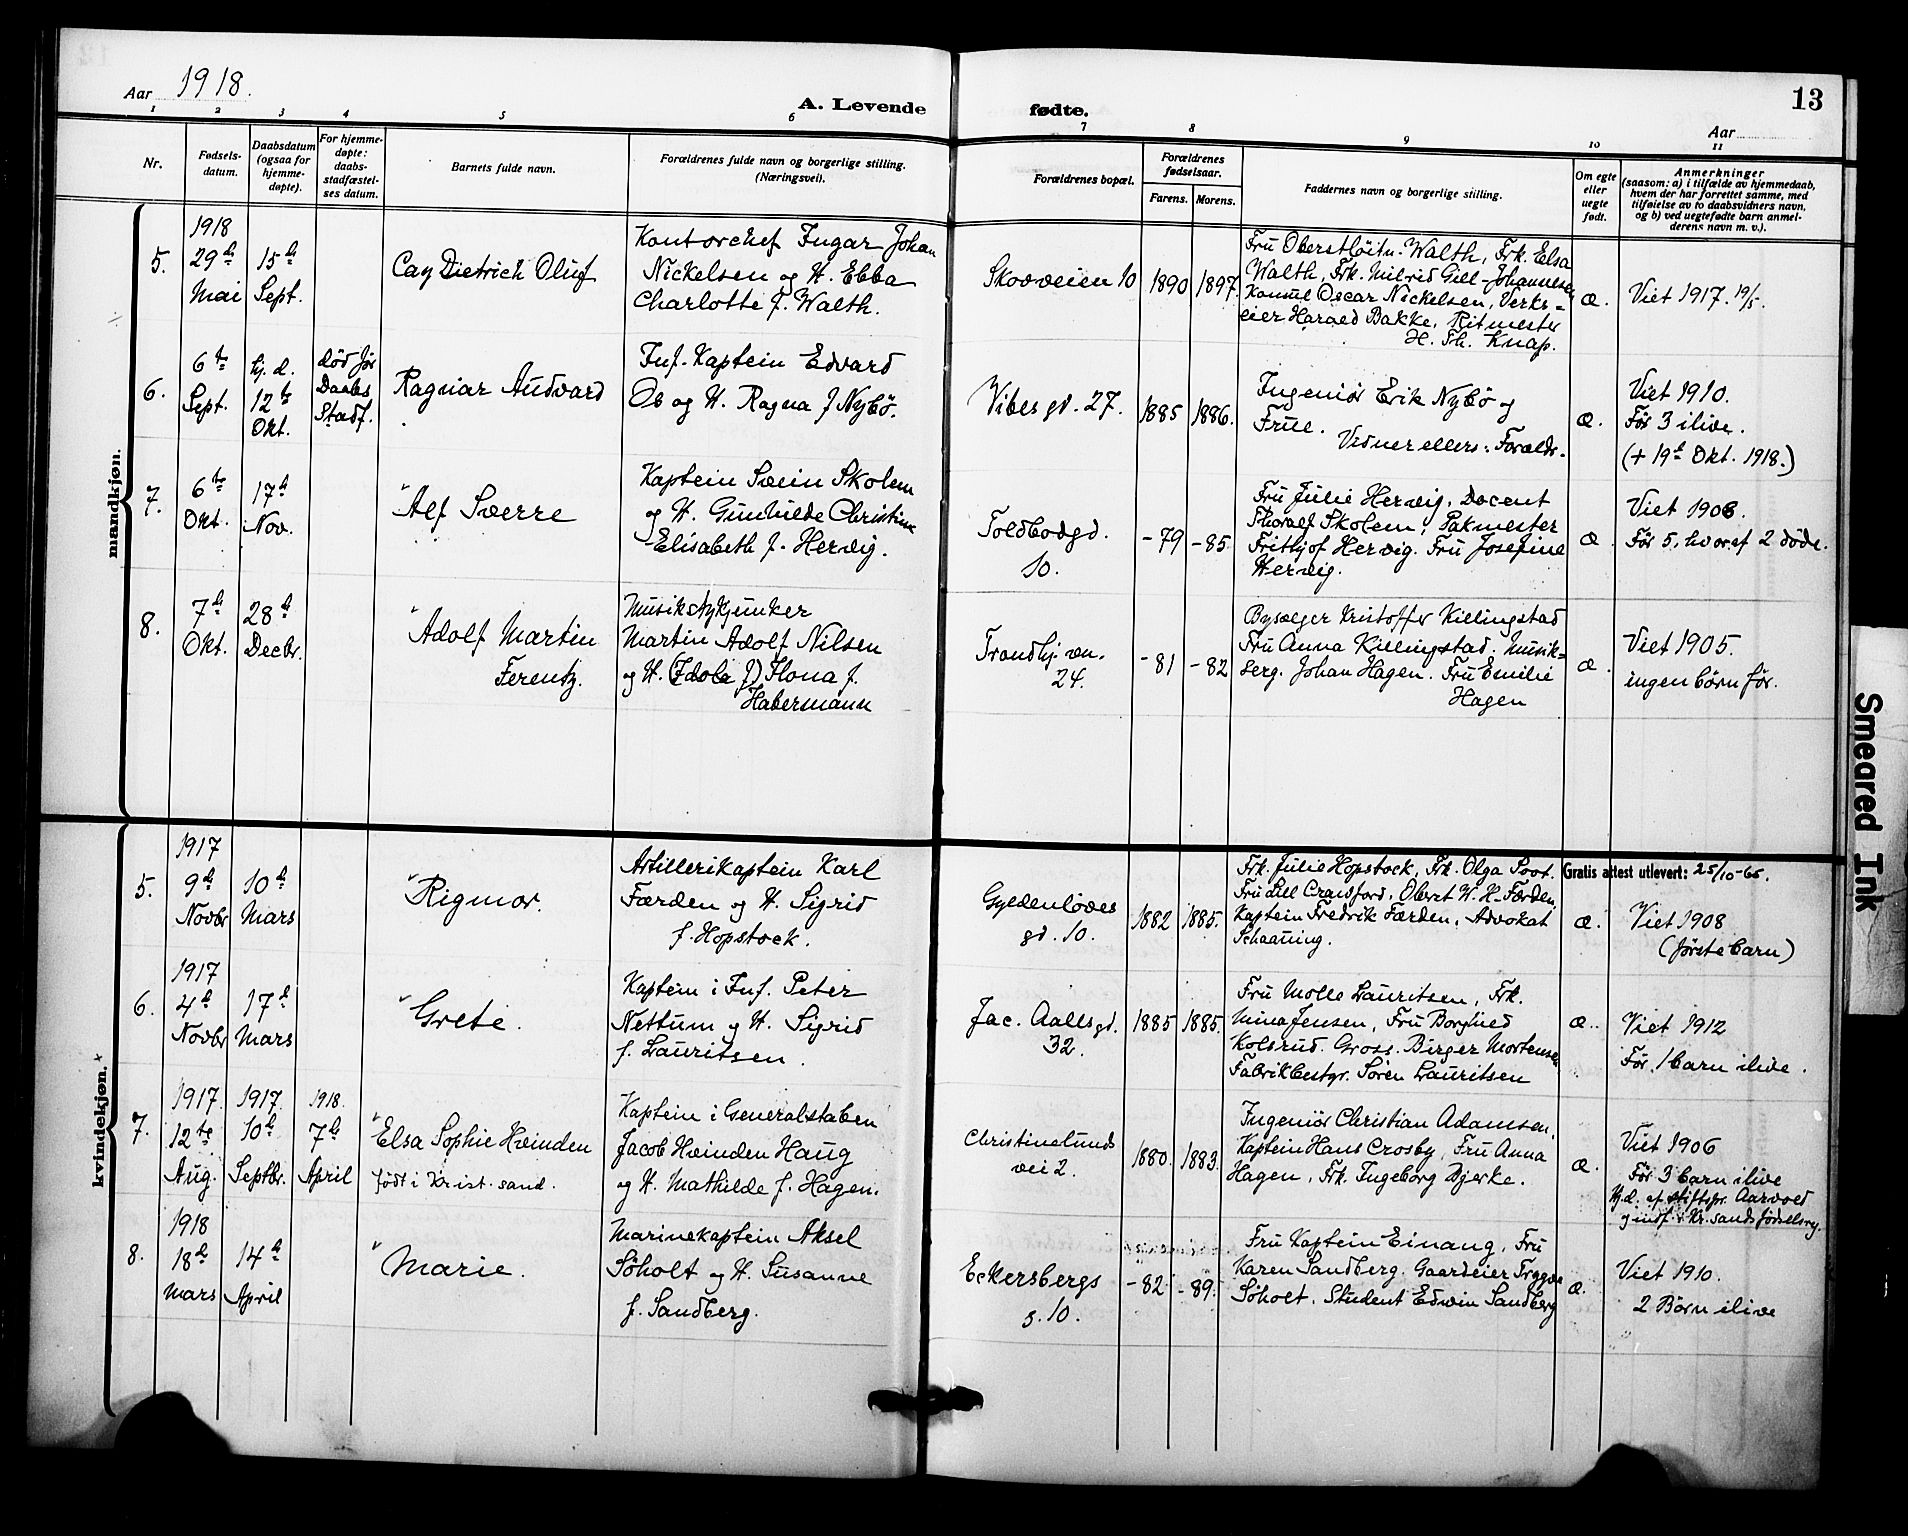 Aar 1918.
A. Levende fødte.
13
Aar
1 2 3 4 5 6 7 8 9 10 11
Nr.
Fødsels-
datum.
Daabsdatum
(ogsaa for
hjemme-
døpte).
For hjemme-
døpte:
daabs-
stadfæstel-
ses datum.
Barnets fulde navn.
Forældrenes fulde navn og borgerlige stilling.
(Næringsvei).
Forældrenes bopæl.
Forældrenes
fødselsaar.
Farens. Morens.
Faddernes navn og borgerlige stilling.
Om egte
eller
uegte
født.
Anmerkninger
(saasom: a) i tilfælde av hjemmedaab,
hvem der har forrettet samme, med
tilføielse av to daabsvidners navn,
og b) ved uegtefødte barn anmel-
derens navn m. v.).
mandkjøn.
5.
1918
29de
Mai
15de
Sept.
Cay Dietrich Oluf
Kontorchef Ingar Johan
Nickelsen og H. Ebba
Charlotte f. Walth.
Skovveien 10
1890
1897.
Fru Oberstløitn. Walth, Frk. Elsa
Walth, Frk. Milrid Gill-Johannesen
Konsul Oscar Nickelsen, Verks-
eier Harald Bakke, Ritmester
H. Th. Knap.
æ.
Viet 1917. 19/5.
6.
6te
Sept.
hj. d.
12te
Okt.
død før
Daabs
Stadf.
Ragnar Audvard
Inf. Kaptein Edvard
Os og H. Ragna f Nybö.
Vibes gd. 27.
1885
1886.
Ingeniör Erik Nybö og
Frue.
Vidner ellers: Forældr.
æ.
Viet 1910.
Før 3 ilive.
(+ 19de Okt. 1918.)
7.
6te
Okt.
17de
Nov.
Alf Sverre
Kaptein Svein Skolem
og H. Gunhilde Christine
Elisabeth f. Hervig.
Toldbodgd.
10.
-79
-85.
Fru Julie Hervig, Docent
Thoralf Skolem, Pakmester
Frithjof Hervig. Fru Josefine
Hervig.
æ.
Viet 1906.
Før 5, hvoraf 2 døde.
8.
7de
Okt.
28de
Decbr.
Adolf Martin
Ferentz.
Musikstykjunker
Martin Adolf Nilsen
og H. (Idola f) Ilona f.
Habermann
Trondhj. vn.
24.
-81
-82
Bysælger Kristoffer Killingstad
Fru Anna Killingstad. Musik-
serg. Johan Hagen. Fru Emilie
Hagen
æ.
Viet 1905.
ingen börn før.
kvindekjøn.
5.
1917
9de
Novbr
10de
Mars
Rigmor.
Artillerikaptein Karl
Færden og H. Sigrid
f. Hopstock.
Gyldenlöves
gd. 10.
1882
1885.
Frk. Julie Hopstock, Frk. Olga Poot.
Fru Lill Crawford, Oberst W. H. Færden,
Kaptein Fredrik Færden, Advokat
Schaaning.
æ.
Gratis attest utlevert: 25/10-65.
Viet 1908
(første barn)
6.
1917
4de
Novbr
17de
Mars
Grete.
Kaptein i Inf. Peter
Nettum og H. Sigrid
f. Lauritsen.
Jac. Aallsgd.
32.
1885
1885.
Fru Molle Lauritsen, Frk.
Mina Jensen, Fru Borghild
Kolsrud. Gross. Birger Mortensen
Fabrikbestyr. Sören Lauritsen
æ.
Viet 1912
Før 1 barn ilive.
7.
1917
12te
Aug.
1917
10de
Septbr.
1918.
7de
April
Elsa Sophie Hvinden
født i Krist. sand.
Kaptein i Generalstaben
Jacob Hvinden Haug
og H. Mathilde f. Hagen.
Christinelunds
vei 2.
1880.
1883.
Ingeniör Christian Adamsen,
Kaptein Hans Crosby, Fru Anna
Hagen, Frk. Ingeborg Bjerke.
æ.
Viet 1906
Før 3 barn ilive
Hj.d. af stiftspr. Aarvold
og indf i Kr. sands fødselsreg.
8.
1918
18de
Mars
14de
April
Marie.
Marinekaptein Aksel
Söholt og H. Susanne
f. Sandberg.
Eckersbergs
g. 10.
-82
-89.
Fru Kaptein Einang, Fru
Karen Sandberg. Gaardeier Trygve
Söholt, Student Edwin Sandberg
æ.
Viet 1910.
2 Börn ilive
Smeared Ink